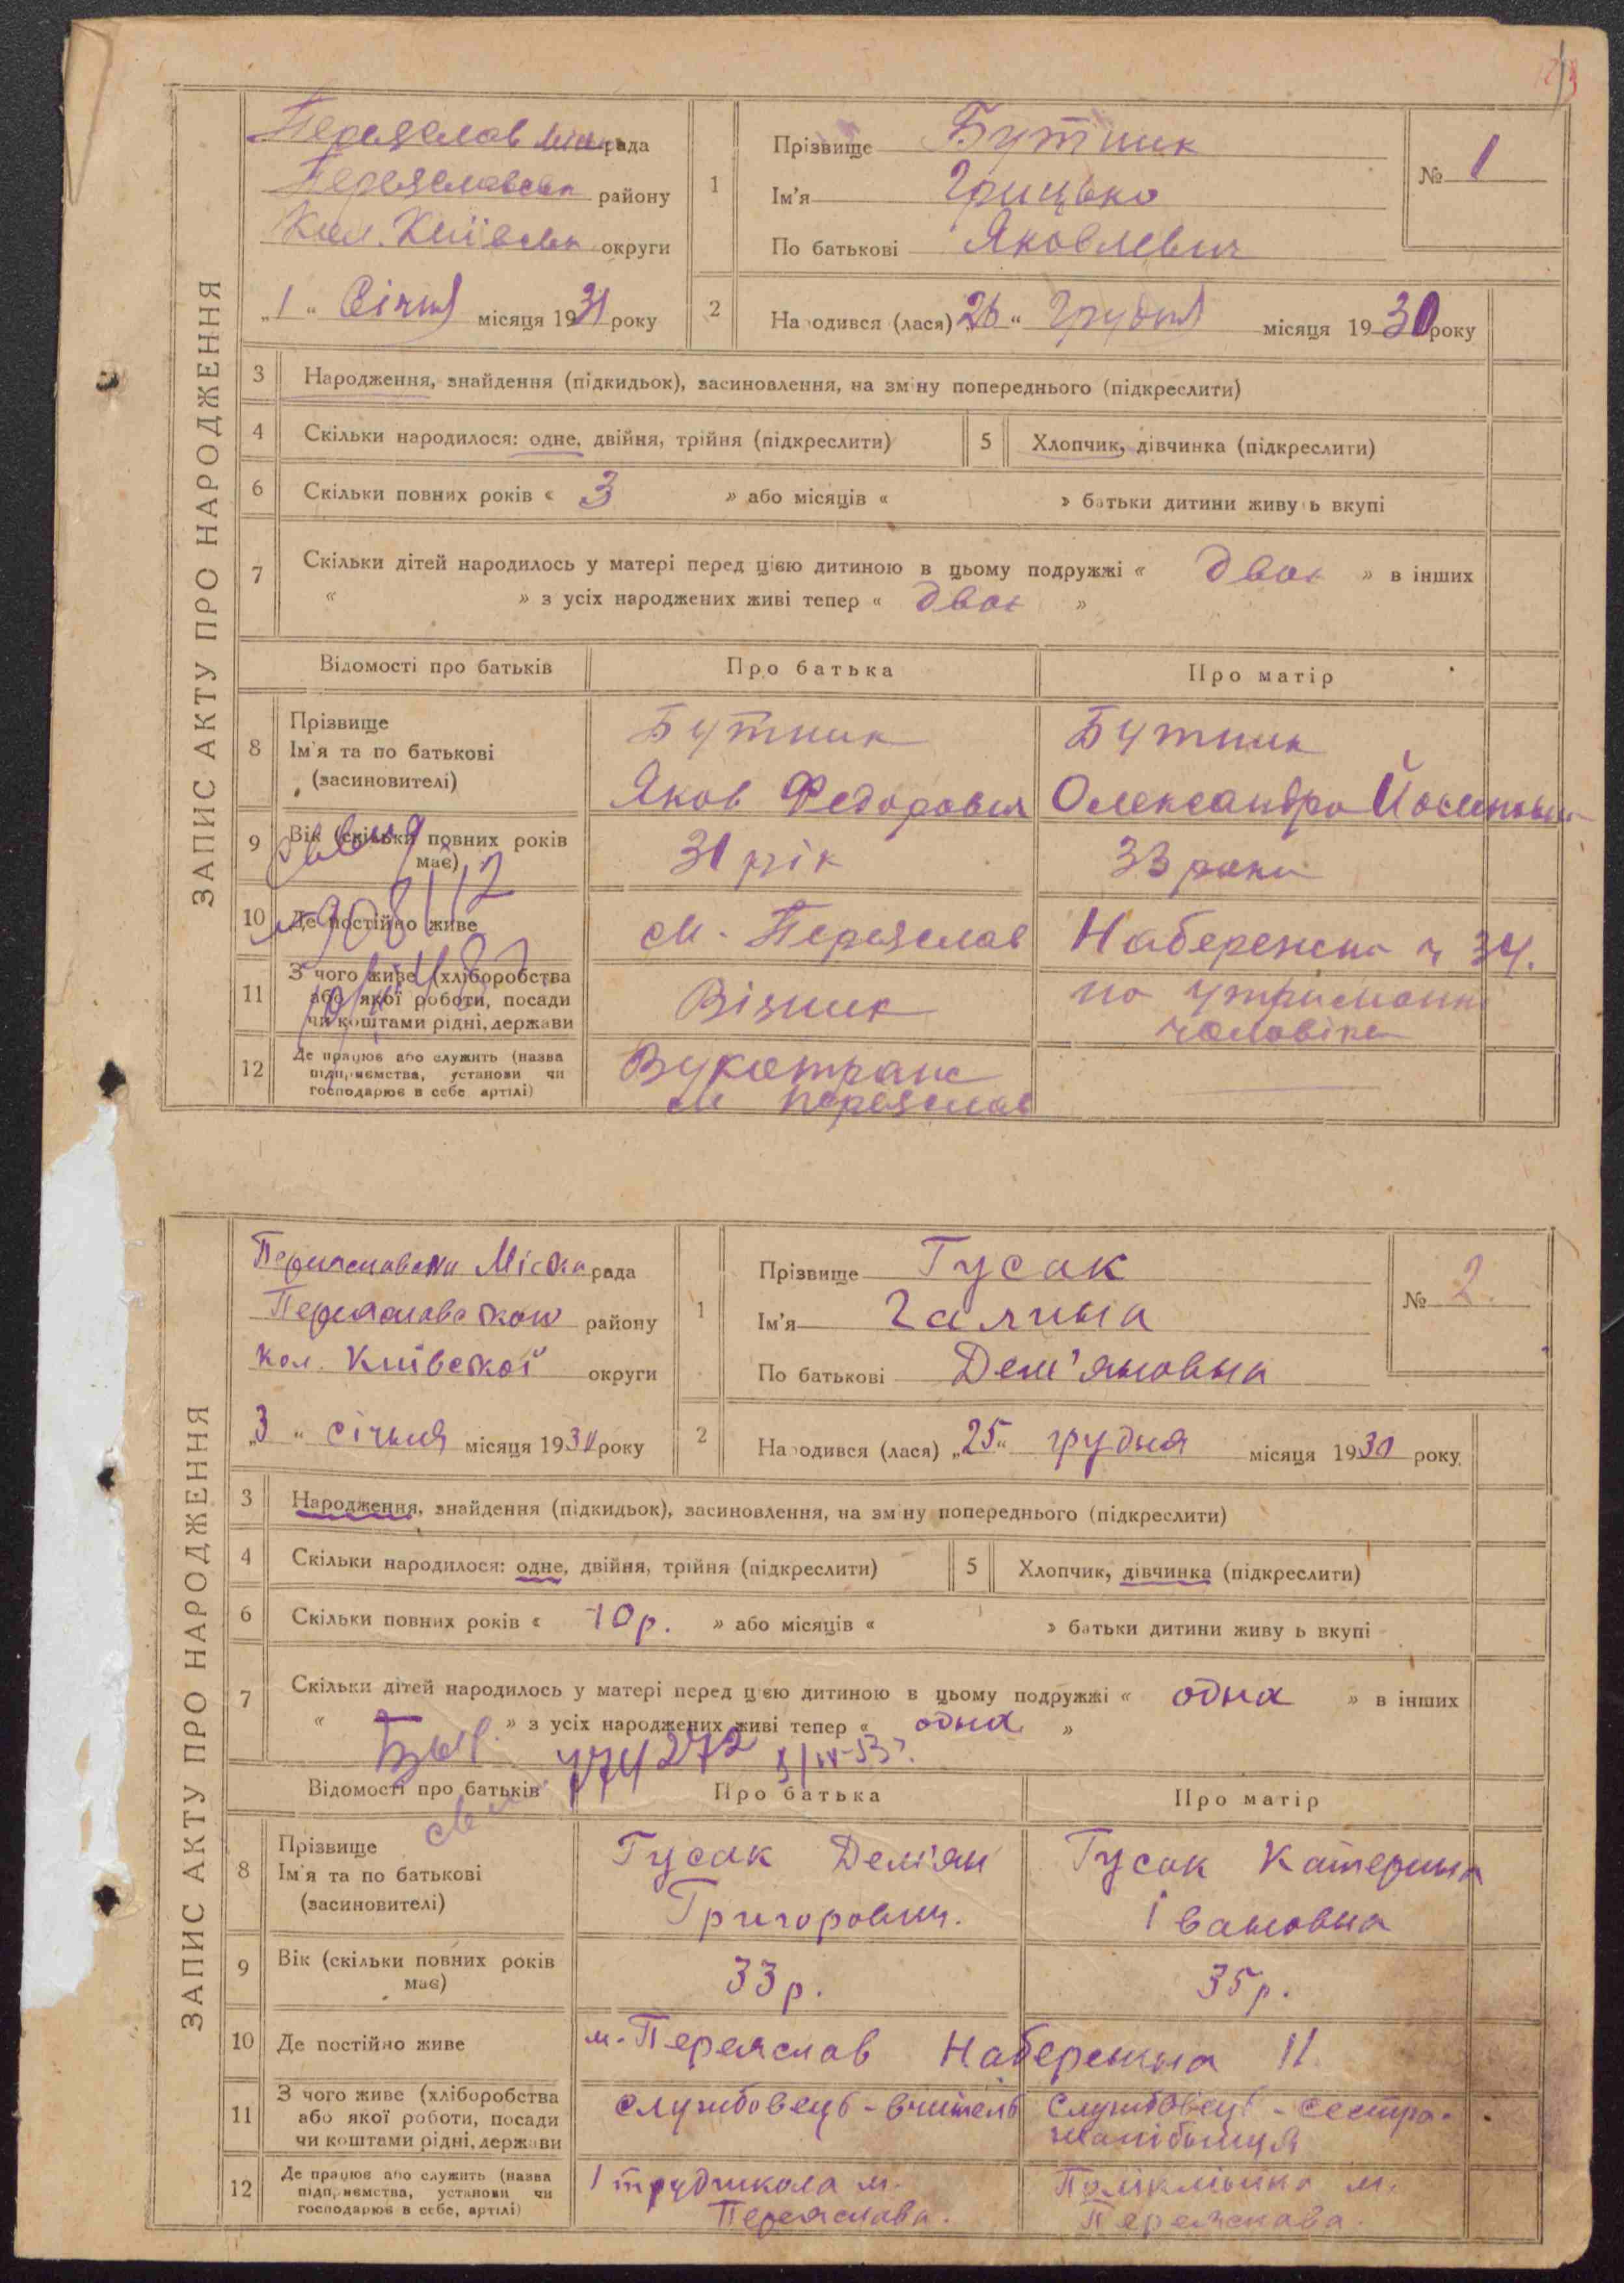 ЗАПИС АКТУ ПРО НАРОДЖЕННЯ
Переяслав міськ рада
Переяславськ району
Кол. Київськ округи
„1“ Січня місяця 1931 року
1
Прізвище Бутник
Ім'я Грицько
По батькові Яковлевич
№ 1
2
Народився (лася) „26“ Грудня місяця 1930 року
3 Народження, знайдення (підкидьок), засиновлення, на зміну попереднього (підкреслити)
4 Скільки народилося: одне, двійня, трійня (підкреслити) 5 Хлопчик, дівчинка (підкреслити)
6 Скільки повних років « 3 » або місяців « » батьки дитини живуть вкупі
7 Скільки дітей народилось у матері перед цією дитиною в цьому подружжі « двоє » в інших
« » з усіх народжених живі тепер « двоє »
Відомості про батьків Про батька Про матір
8 Прізвище
Ім'я та по батькові
(засиновителі)
Бутник
Яков Федорович
Бутник
Олександра Йосиповна
9 Вік (скільки повних років має)
31 рік
33 роки
10 Де постійно живе
м. Переяслав Набережна 34.
11 З чого живе (хліборобства
або якої роботи, посади
чи коштами рідні, держави
Візник
на утриманні
чоловіка
12 Де працює або служить (назва
підприємства, установи чи
господарює в себе артілі)
Вукотранс
м Переяслав
ЗАПИС АКТУ ПРО НАРОДЖЕННЯ
Переяславська Міська рада
Переяславського району
Кол. Київської округи
„3“ січня місяця 1931 року
1
Прізвище Гусак
Ім'я Галина
По батькові Дем'яновна
№ 2.
2
Народився (лася) „25“ грудня місяця 1930 року
3 Народження, знайдення (підкидьок), засиновлення, на зміну попереднього (підкреслити)
4 Скільки народилося: одне, двійня, трійня (підкреслити) 5 Хлопчик, дівчинка (підкреслити)
6 Скільки повних років « 10 р. » або місяців « » батьки дитини живуть вкупі
7 Скільки дітей народилось у матері перед цією дитиною в цьому подружжі « одна » в інших
« » з усіх народжених живі тепер « одна »
Відомості про батьків Про батька Про матір
8 Прізвище
Ім'я та по батькові
(засиновителі)
Гусак Дем'ян
Григорович.
Гусак Катерина
Івановна
9 Вік (скільки повних років
має)
33 р.
35 р.
10 Де постійно живе
м. Переяслав Набережна 11
11 З чого живе (хліборобства
або якої роботи, посади
чи коштами рідні, держави
службовець - вчитель
Службовець - сестра-
жалібниця
12 Де працює або служить (назва
підприємства, установи чи
господарює в себе, артілі)
1 трудшкола м.
Переяслава.
Поликлініка м.
Переяслава.